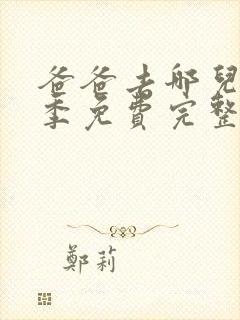 爸爸去哪兒
季免費完整
鄭莉